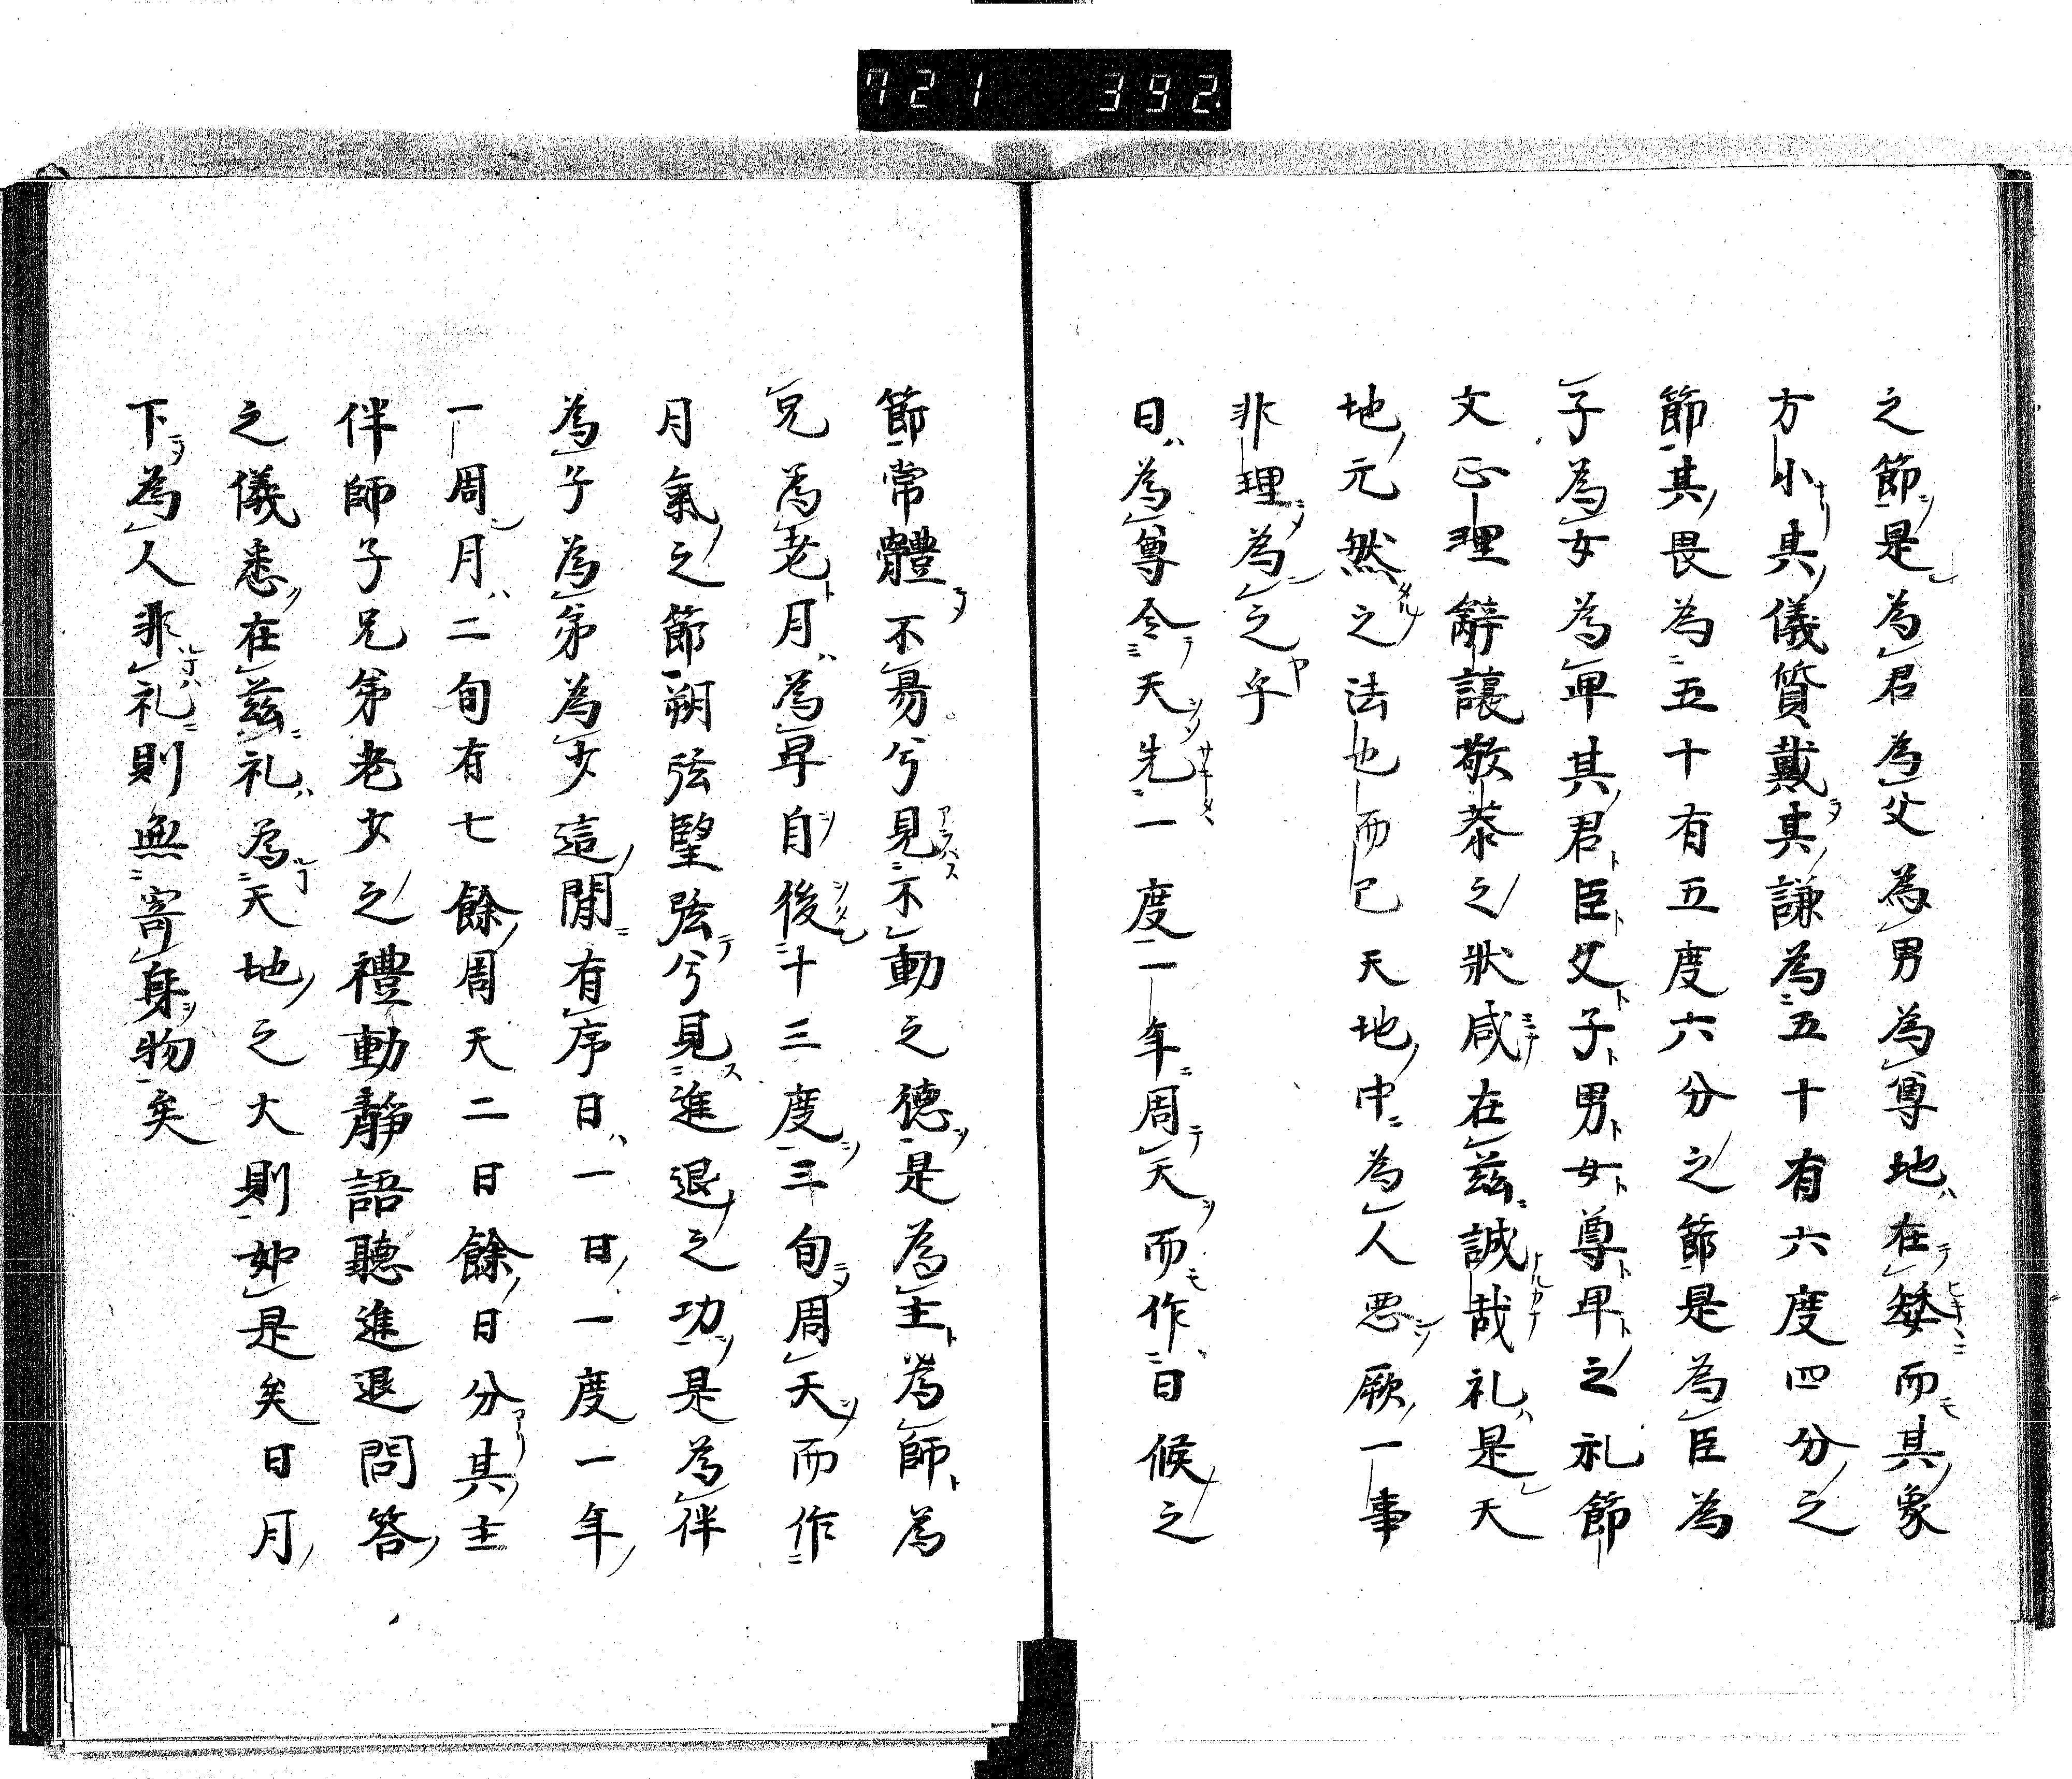 721 392
之節是為君為父為男為尊地ハ在矮而其象
方小其儀質戴其謙為五十有六度四分之
節其畏為五十有五度六分之節是為臣為
子為女為卑其君臣父子男女尊卑之礼節
文正理辭讓敬恭之狀咸在茲誠哉礼是天
地元然之法也而已天地中為人悪厥一事
非理為之乎
日為尊令天先一度一年周天而作日候之
節常體不易兮見不動之德是為主為師為
兄為老月為卑自後十三度三旬周天而作
月氣之節朔弦望弦兮見進退之功是為伴
為子為弟為少這間有序日一日一度一年
一周月二旬有七餘周天二日餘日分其主
伴師子兄弟老少之禮動靜語聽進退問答
之儀悉在茲礼為天地之大則如是矣日月
下為人非礼則無寄身物矣